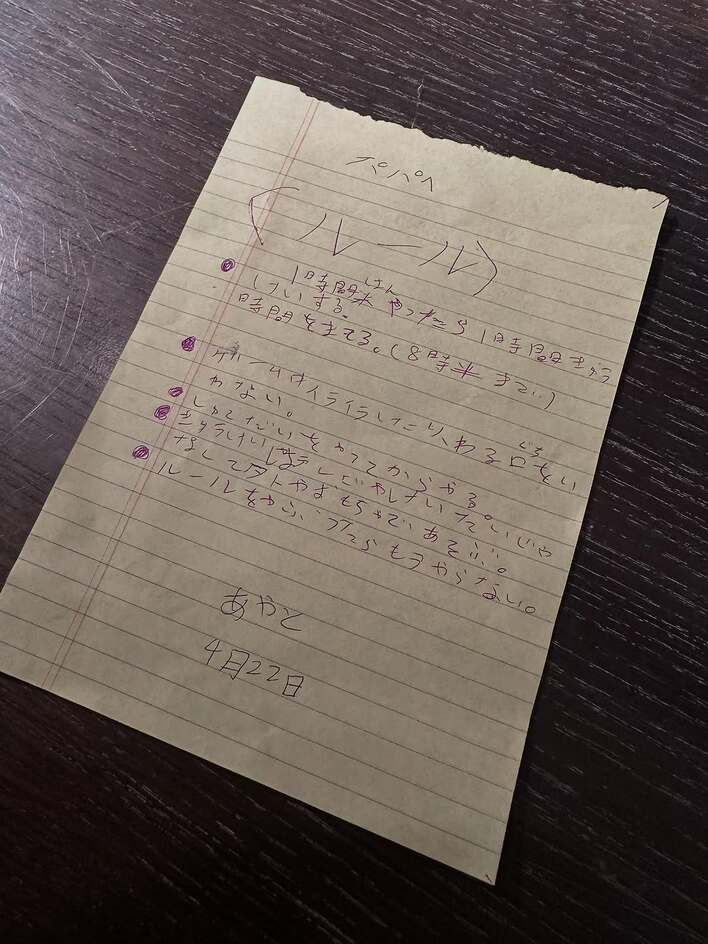 パパへ
〈ルール〉
1時間はん
やったら1時間きゅう
けいする。
時間をきてる。(8時半まで)
ゲームはイライラしたり、わる口をい
ぐち
わない。
しゅくだいをやってからやる。
きゅうけいはテレビやけいたいじゃ
なくてワトやおもちゃであそぶ。
ルールをやぶったらもうやらない。
あやと
4月22日